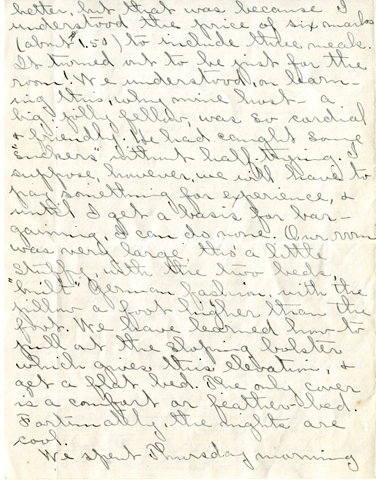 better, but that was because I
understood the price of six marks
(about $1.50) to include three meals.
It turned out to be just for the
room! We understood, on learn-
ing this, why mine host - a
big jolly fellow, was so cordial
& friendly. He had caught some
"suckers" without half trying. I
suppose, however, we will have to
pay something for experience, &
until I get a basis for bar-
gaining, I can do none. Our room
was very large tho' a little
stuffy, with the two beds,
"built" German fashion, with the
pillow a foot higher than the
foot. We have learned how to
pull out the sloping bolster
which gives this elevation, &
get a flat bed. The only cover
is a comfort or feather-bed.
Fortunately, the nights are
cool.
We spent Thursday morning